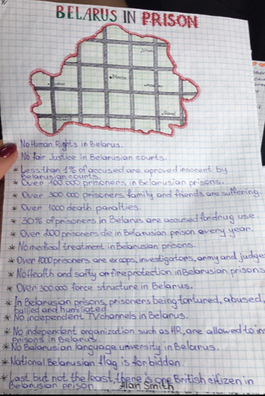 BELARUS IN PRISON
Minsk
No Human Rights in Belarus.
No fair Justice in Belarusian courts.
* Less than 1% of accused are aproved inocent by
Belarusian courts.
* Over 100 000 prisoners in Belarusian prisons.
* Over 300 000 prisoners, family and friends are suffering.
* Over 1000 death panalties.
* 30% of prisoners in Belarus are accused for drug use.
* Over 200 prisoners die in Belarusian prison every year.
* No medical treatment in Belarusian prisons.
* Over 1000 prisoners are ex cops, investigators, army and judges
* No Health and safty or fire protection in Belarusian prisons
* Over 300.000 force structure in Belarus.
* In Belarusian prisons, prisoners being tortured, abused,
bullied and humiliated
* No independent TV channels in Belarus.
* No independent organization such as HR, are allowed to in
Prisons in Belarus
* No Belarusian language university in Belarus.
* National Belarusian flag is forbidden
* Last but not the least, there is one British citizen in
Belarusian prison. Alan Smith